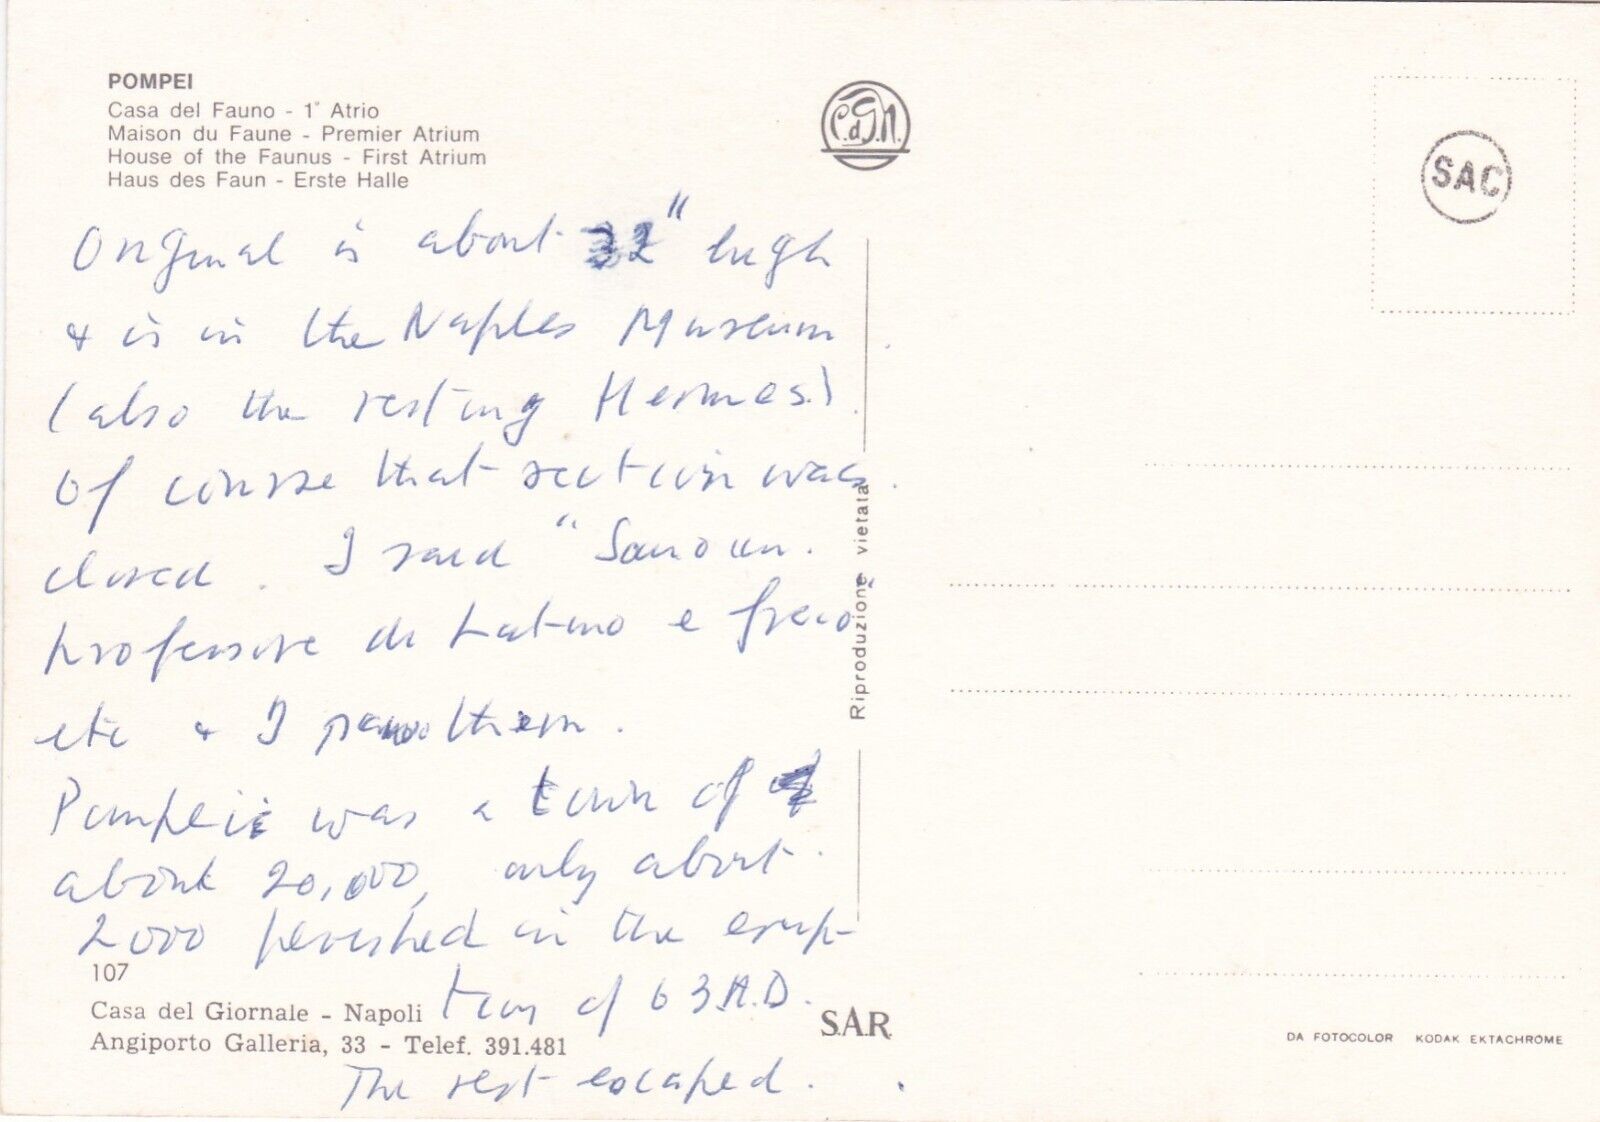 POMPEI
Casa del Fauno - 1° Atrio
Maison du Faune - Premier Atrium
House of the Faunus - First Atrium
Haus des Faun - Erste Halle
C.d.G.N.
SAC
Original is about 32" high
& is in the Naples Museum.
(also the resting Hermes).
Of course that section was
closed. I said "Sono un
professore di Latino e greco
etc & I saw them.
Pompeii was a town of
about 20,000, only about
2000 perished in the erup-
tion of 63 A.D.
The rest escaped.
Riproduzione vietata
107
Casa del Giornale - Napoli
Angiporto Galleria, 33 - Telef. 391.481
S.A.R.
DA FOTOCOLOR KODAK EKTACHROME